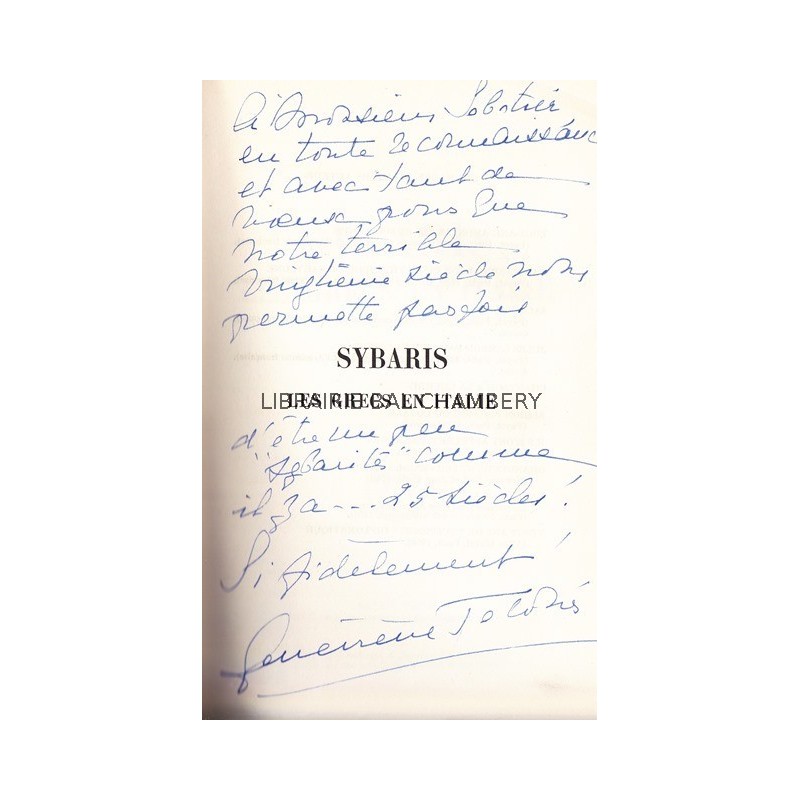 à Monsieur Sabatier
en toute reconnaissance
et avec tant de
vieux que
notre terrible
vingtième siècle nous
permette parfois
SYBARIS
LES GRECS EN ITALIE
LIBRAIRIE BAL CHAMBERY
d'être un peu
"sybarites" comme
il y a --- 25 siècles!
Si fidèlement!
Geneviève